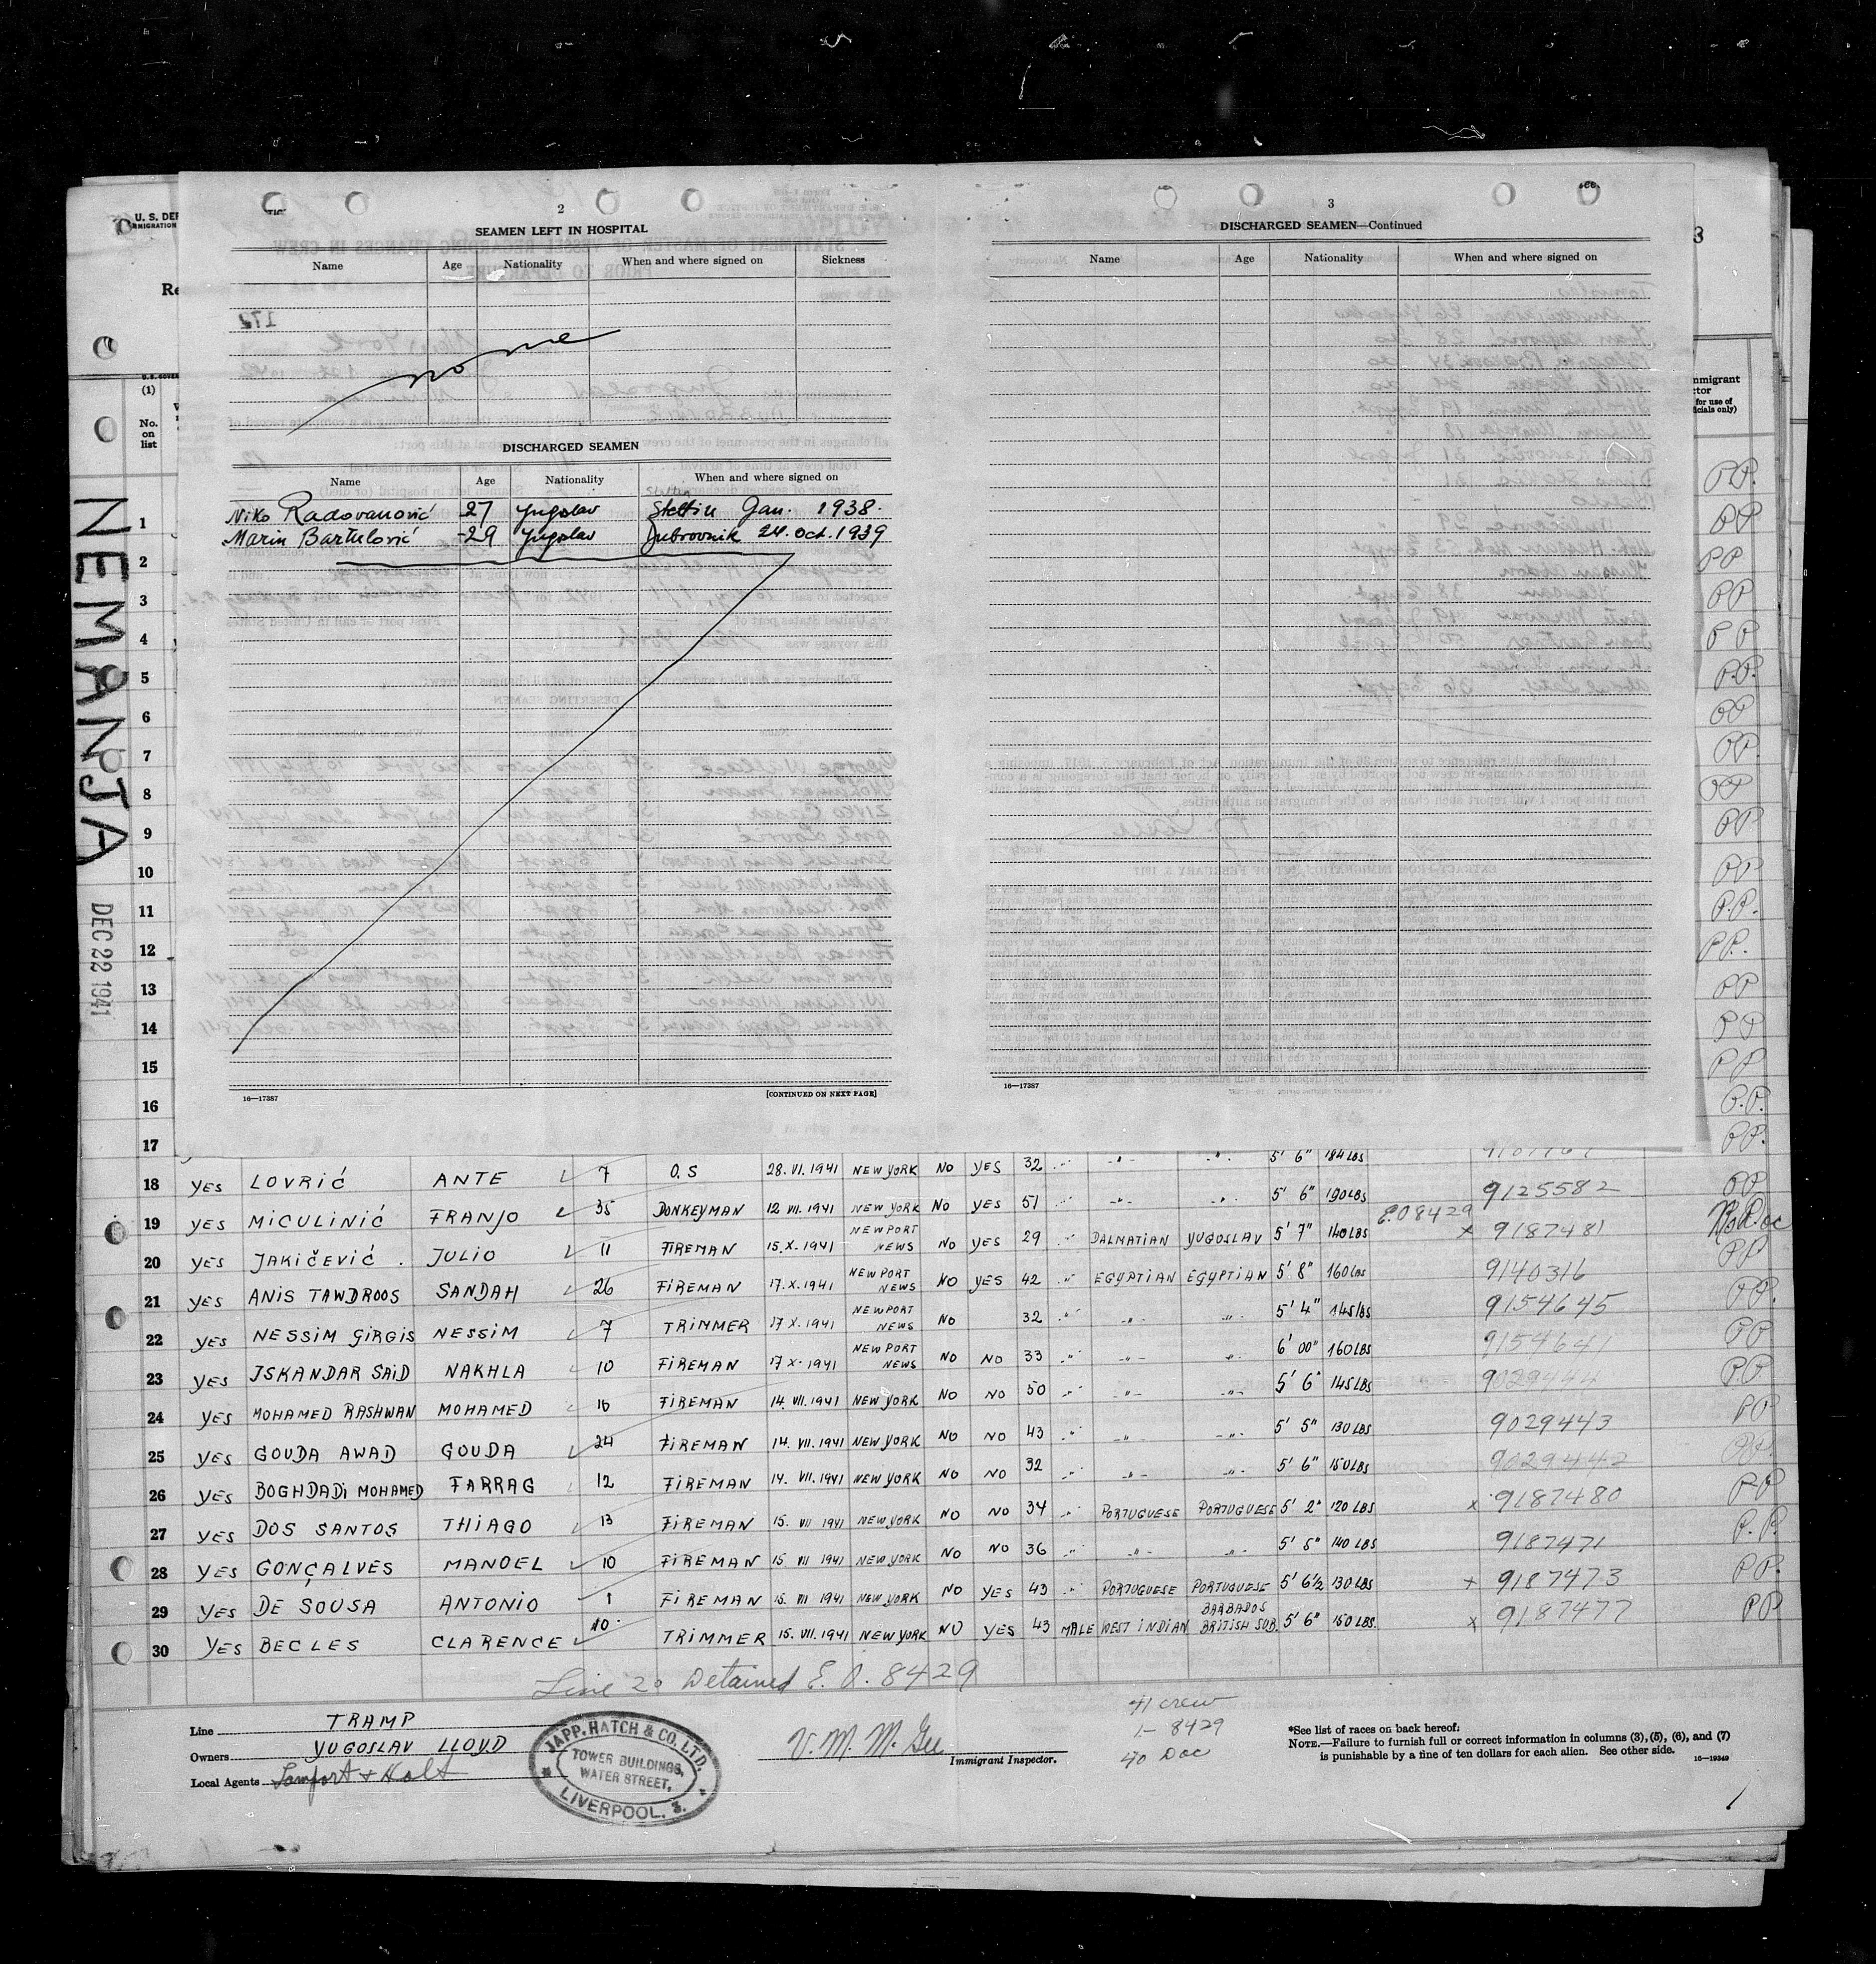 U. S. DEP
IMMIGRATION
3
2
SEAMEN LEFT IN HOSPITAL
Name Age Nationality When and where signed on Sickness
none
DISCHARGED SEAMEN
Name Age Nationality When and where signed on
Niko Radovanović 27 Yugoslav Stettin Jan. 1938.
Marin Bartulović -29 Yugoslav Dubrovnik 24. Oct. 1939
16—17387 [CONTINUED ON NEXT PAGE]
3
DISCHARGED SEAMEN—Continued
Name Age Nationality When and where signed on
16—17387
(1)
No. on list
NEMANJA
DEC 22 1941
1 P.P.
2 PP
3 PP
4 PP
5 PP
6 P.P.
7 PP
8 PP
9 PP
10 PP
11 PP
12 P.P.
13 PP.
14 PP
15 PP
16 PP
17 P.P.
5' 6" 184 LBS
18 YES LOVRIĆ ANTE 7 O.S 28. VI. 1941 NEW YORK NO YES 32 " -"- -"-
19 YES MICULINIĆ FRANJO 35 DONKEYMAN 12 VII. 1941 NEW YORK NO YES 51 " -"- -"- 5' 6" 190 LBS 9125582
20 YES JAKIČEVIĆ . JULIO 11 FIREMAN 15. X. 1941 NEWPORT NEWS NO YES 29 " DALMATIAN YUGOSLAV 5' 7" 140 LBS E.O 8429 x 9187481
21 YES ANIS TAWDROOS SANDAH 26 FIREMAN 17. X. 1941 NEWPORT NEWS NO YES 42 " EGYPTIAN EGYPTIAN 5' 8" 160 LBS 9140316 PP
22 YES NESSIM GIRGIS NESSIM 7 TRIMMER 17 X. 1941 NEWPORT NEWS NO 32 " -"- -"- 5' 4" 145 LBS 9154645 PP.
23 YES ISKANDAR SAID NAKHLA 10 FIREMAN 17 X. 1941 NEWPORT NEWS NO NO 33 " -"- -"- 6' 00" 160 LBS 9154641 PP
24 YES MOHAMED RASHWAN MOHAMED 16 FIREMAN 14. VII. 1941 NEW YORK NO NO 50 " -"- -"- 5' 6" 145 LBS 9029444 P.P.
25 YES GOUDA AWAD GOUDA 24 FIREMAN 14. VII. 1941 NEW YORK NO NO 43 " -"- -"- 5' 5" 130 LBS 9029443 PP
26 YES BOGHDADI MOHAMED FARRAG 12 FIREMAN 14. VII. 1941 NEW YORK NO NO 32 " -"- -"- 5' 6" 150 LBS 9029442 PP
27 YES DOS SANTOS THIAGO 13 FIREMAN 15. VII 1941 NEW YORK NO NO 34 " PORTUGUESE PORTUGUESE 5' 2" 120 LBS x 9187480 PP
28 YES GONÇALVES MANOEL 10 FIREMAN 15 VII 1941 NEW YORK NO NO 36 " -"- -"- 5' 5" 140 LBS 9187471 P.P.
29 YES DE SOUSA ANTONIO 1 FIREMAN 15. VII 1941 NEW YORK NO YES 43 " PORTUGUESE PORTUGUESE 5' 6½ 130 LBS x 9187473 PP.
30 YES BECLES CLARENCE 10 TRIMMER 15. VII. 1941 NEW YORK NO YES 43 MALE WEST INDIAN BARBADOS BRITISH SUB. 5' 6" 150 LBS. x 9187477 PP
Line 20 Detained E. O. 8429
41 crew
1- 8429
40 Doc
Line TRAMP
Owners YUGOSLAV LLOYD
Local Agents Lamport & Holt
JAPP, HATCH & CO. LTD.
TOWER BUILDINGS,
WATER STREET,
LIVERPOOL. 3.
V. M. McGee
Immigrant Inspector.
*See list of races on back hereof.
NOTE.—Failure to furnish full or correct information in columns (3), (5), (6), and (7)
is punishable by a fine of ten dollars for each alien. See other side.
16—19349